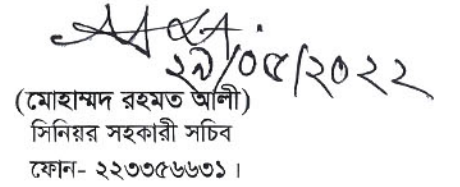 ২৯/০৫/২০২২
(মোহাম্মদ রহমত আলী)
সিনিয়র সহকারী সচিব
ফোন- ২২৩৩৫৬৬৩১।